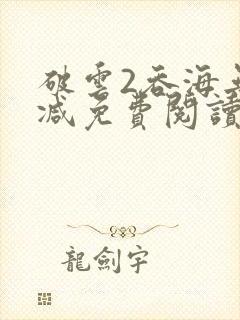 破雲2吞海無
減免費閱讀
龍劍宇